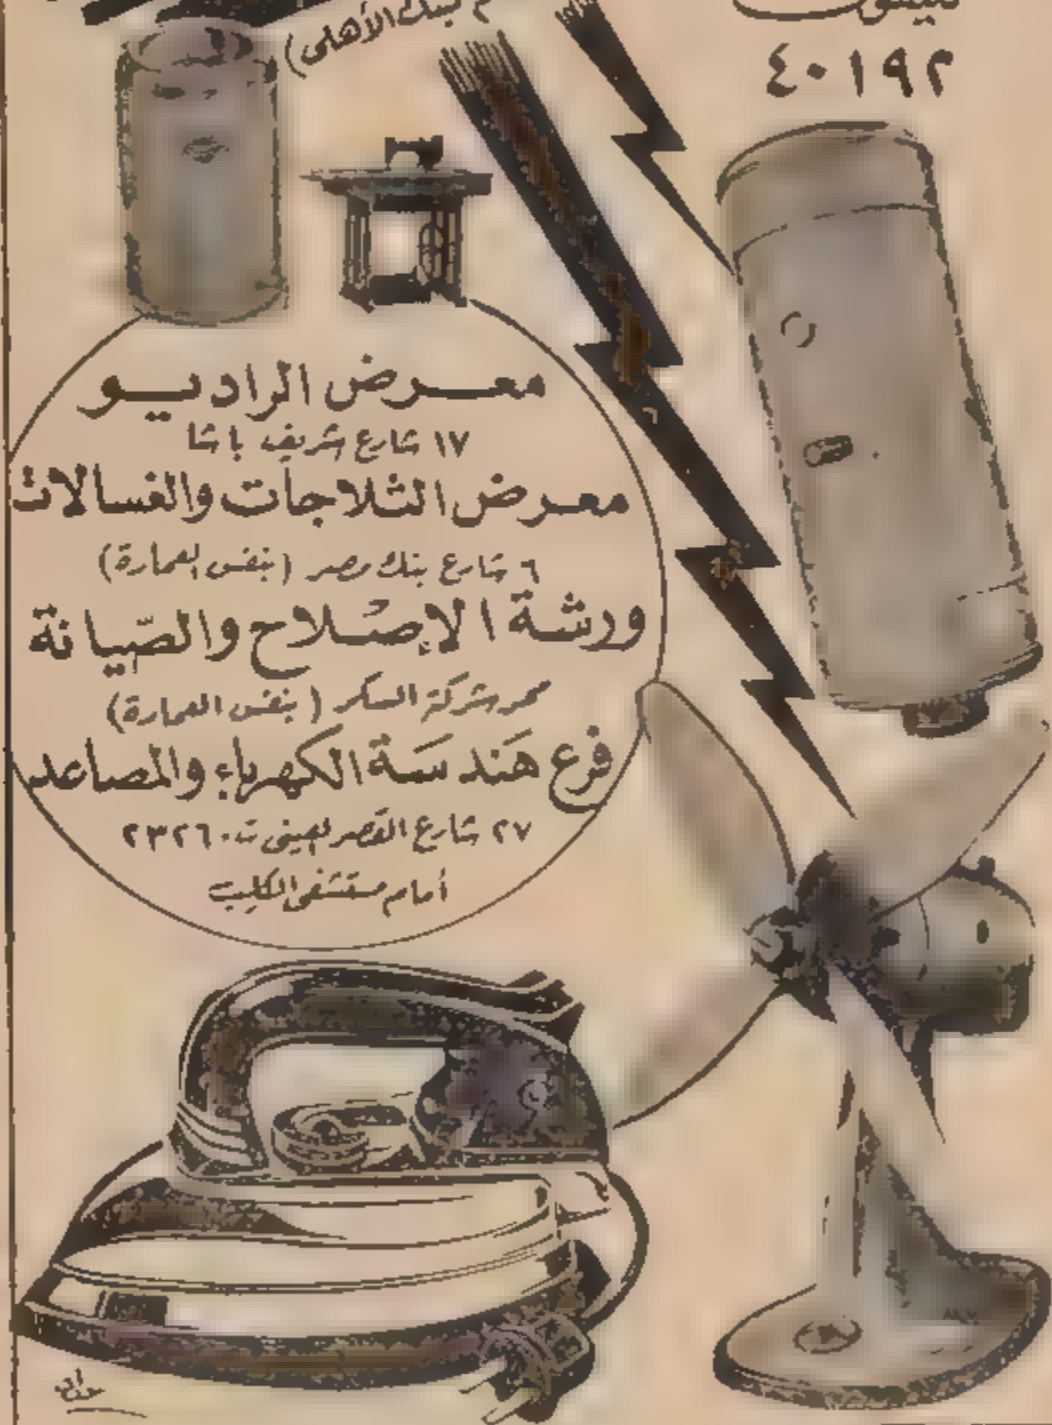 تليفون
٤٠١٩٢
البنك الأهلى)
معرض الراديو
١٧ شارع شريف باشا
معرض الثلاجات والغسالات
٦ شارع بنك مصر (بنفس العمارة)
ورشة الإصلاح والصّيانة
ممر شركة السكر (بنفس العمارة)
فرع هَندسَة الكهرباء والمصاعد
٢٧ شارع القصر العينى ت. ٢٣٢٦٠
أمام مستشفى الكلب